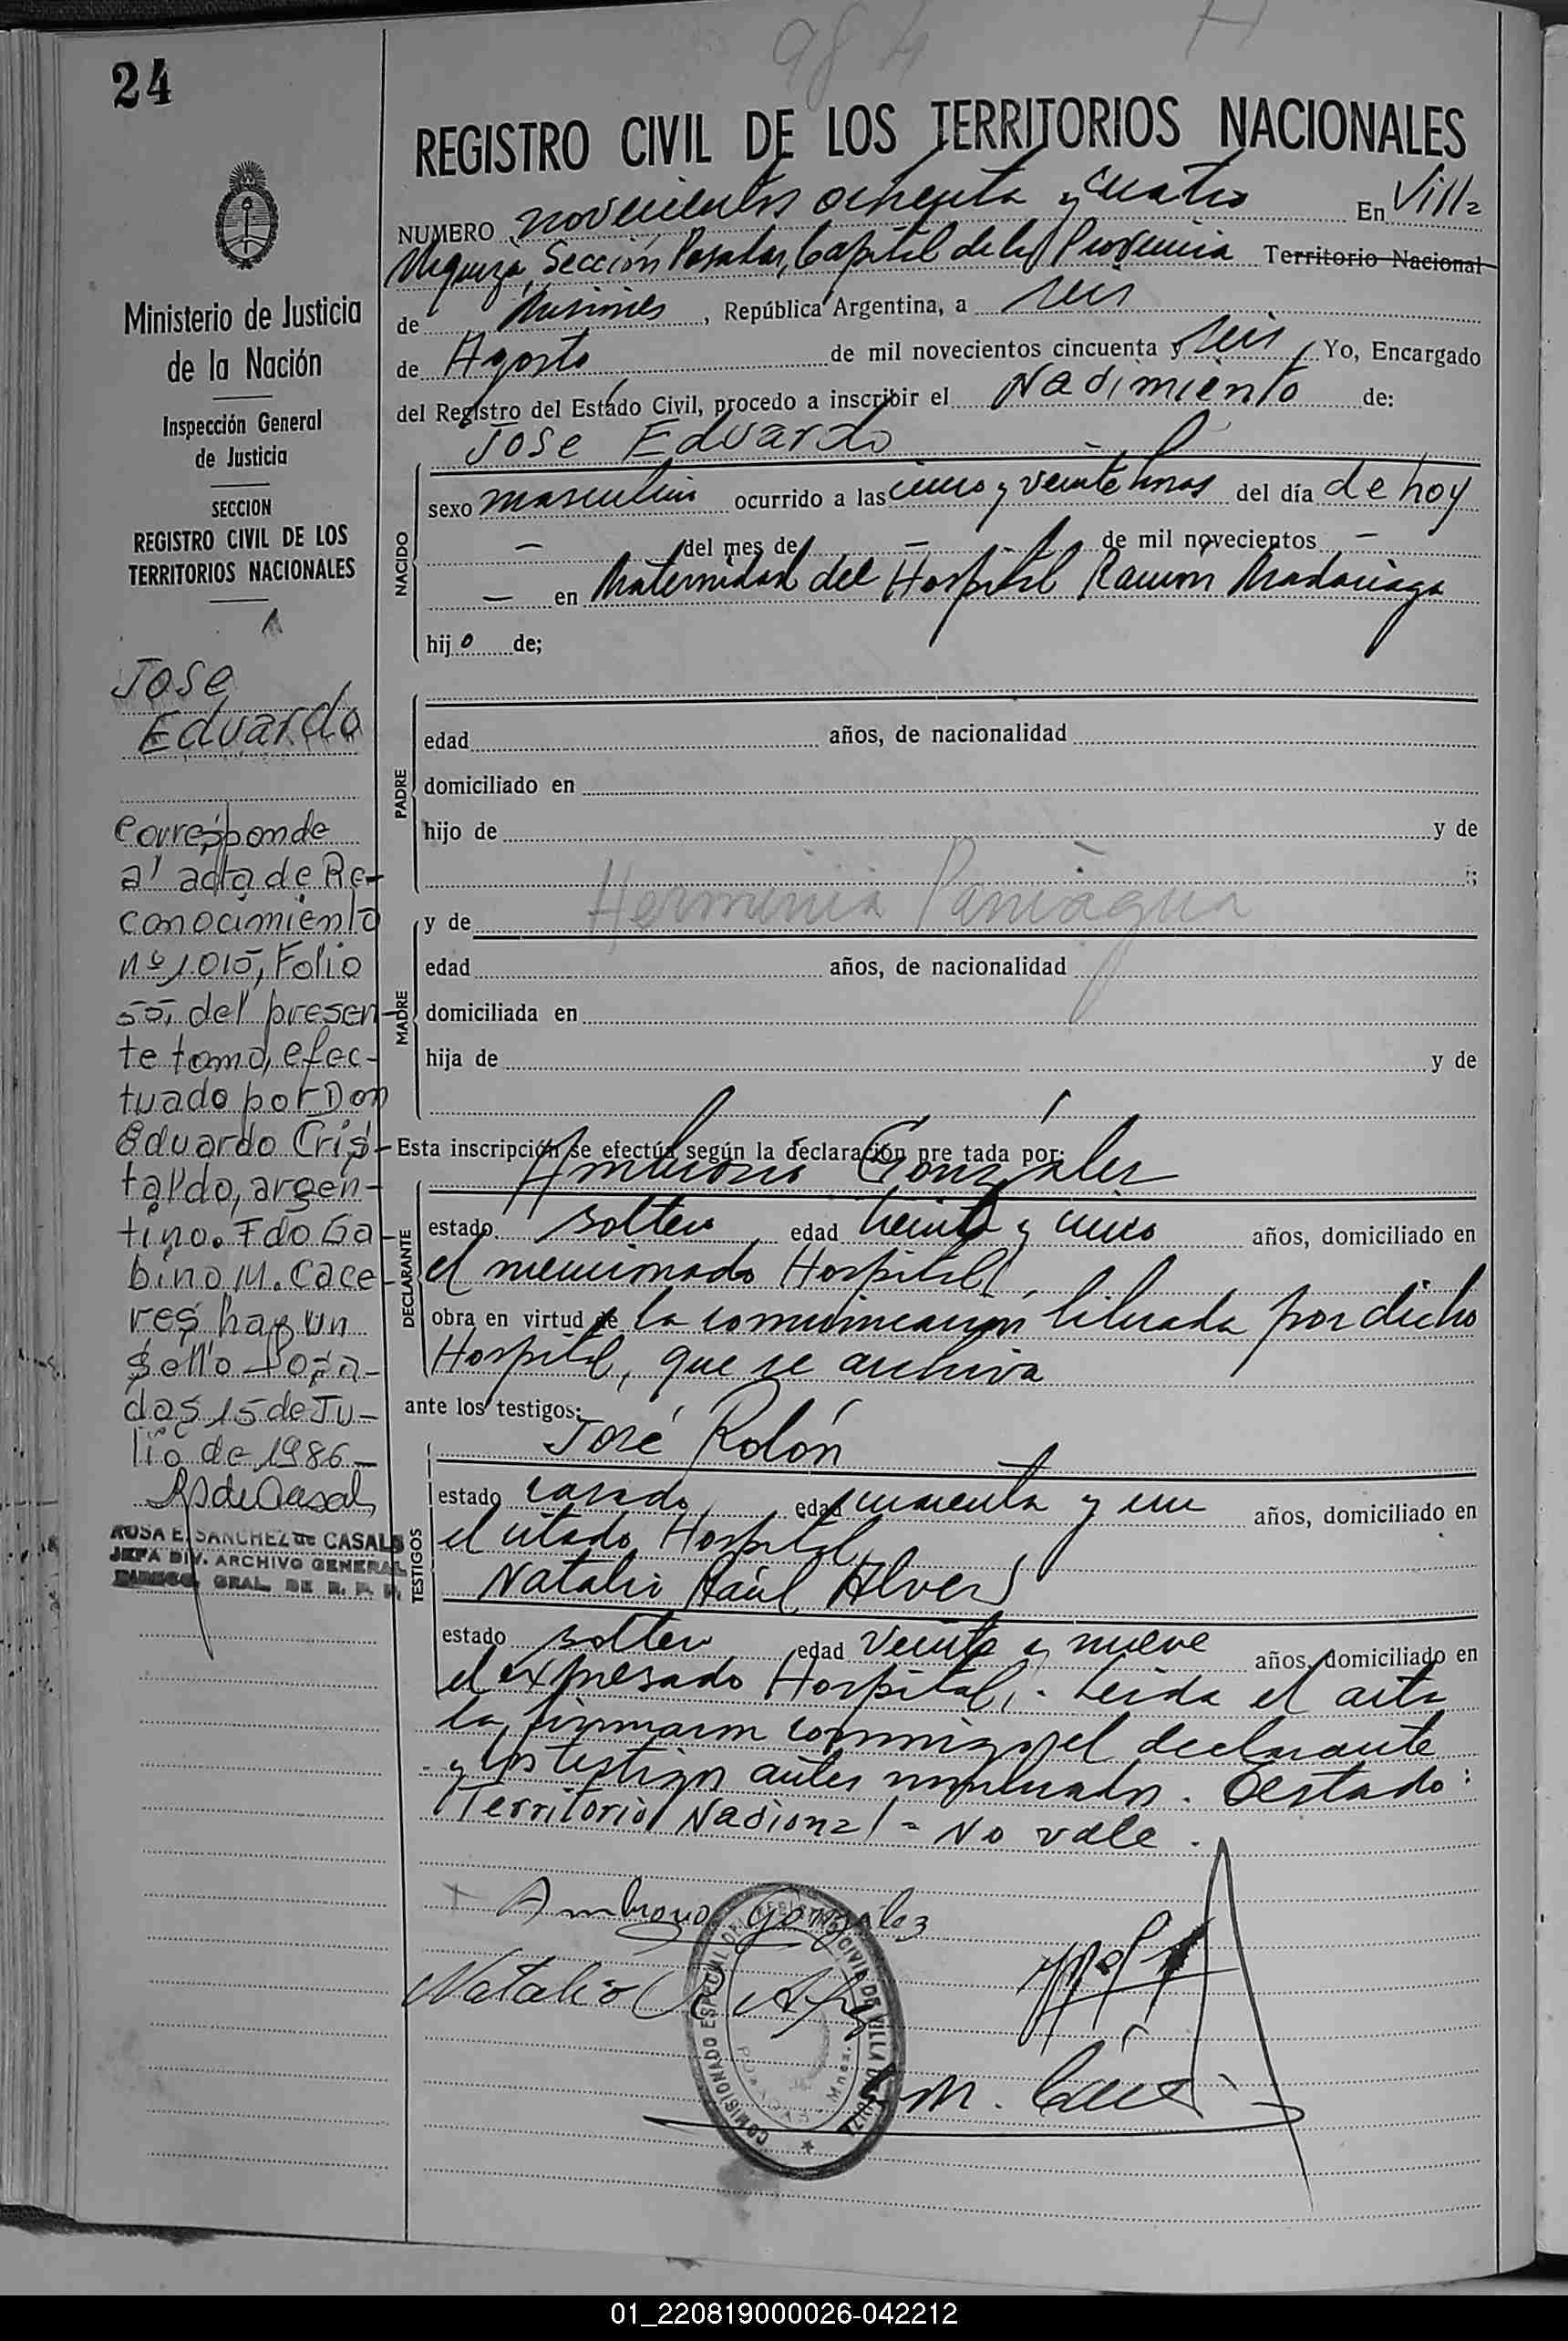 984
24
REGISTRO CIVIL DE LOS TERRITORIOS NACIONALES
NUMERO novecientos ochenta y cuatro En Villa
Urquiza, Sección Posadas, Capital de la Provincia Territorio Nacional
de Misiones, República Argentina, a seis
de Agosto de mil novecientos cincuenta y seis, Yo, Encargado
del Registro del Estado Civil, procedo a inscribir el Nacimiento de:
Jose Eduardo
NACIDO
sexo masculino ocurrido a las cinco y veinte horas del día de hoy
— del mes de — de mil novecientos —
— en Maternidad del Hospital Ramon Madariaga
hijo de;
PADRE
edad años, de nacionalidad
domiciliado en
hijo de y de
;
MADRE
y de Herminia Paniagua
edad años, de nacionalidad
domiciliada en
hija de y de
Esta inscripción se efectúa según la declaración pre tada por:
Ambrosio González
DECLARANTE
estado soltero edad treinta y cinco años, domiciliado en
el mencionado Hospital
obra en virtud de la comunicación librada por dicho
Hospital, que se archiva
ante los testigos:
José Rolón
TESTIGOS
estado casado edad cuarenta y un años, domiciliado en
el citado Hospital
Natalio Raúl Alvez
estado soltero edad veinte y nueve años, domiciliado en
el expresado Hospital.- Leída el acta
la firmaron conmigo el declarante
y los testigos antes nombrados. Testado:
Territorio Nacional = No vale.
Ambrosio Gonzalez
Natalio R.
COMISIONADO ESPECIAL DEL REGISTRO CIVIL DE VILLA URQUIZA
POSADAS - Mnes.
Ministerio de Justicia
de la Nación
Inspección General
de Justicia
SECCION
REGISTRO CIVIL DE LOS
TERRITORIOS NACIONALES
Jose
Eduardo
Corresponde
al acta de Re-
conocimiento
nº 1.015, Folio
55, del presen-
te tomo, efec-
tuado por Don
Eduardo Cris-
taldo, argen-
tino. Fdo Ga-
bino M. Cace-
res hay un
sello Posa-
das 15 de Ju-
lio de 1986—
RS de Casals
ROSA E. SANCHEZ de CASALS
JEFA DIV. ARCHIVO GENERAL
DIRECC. GRAL. DE R. P. P.
01_220819000026-042212